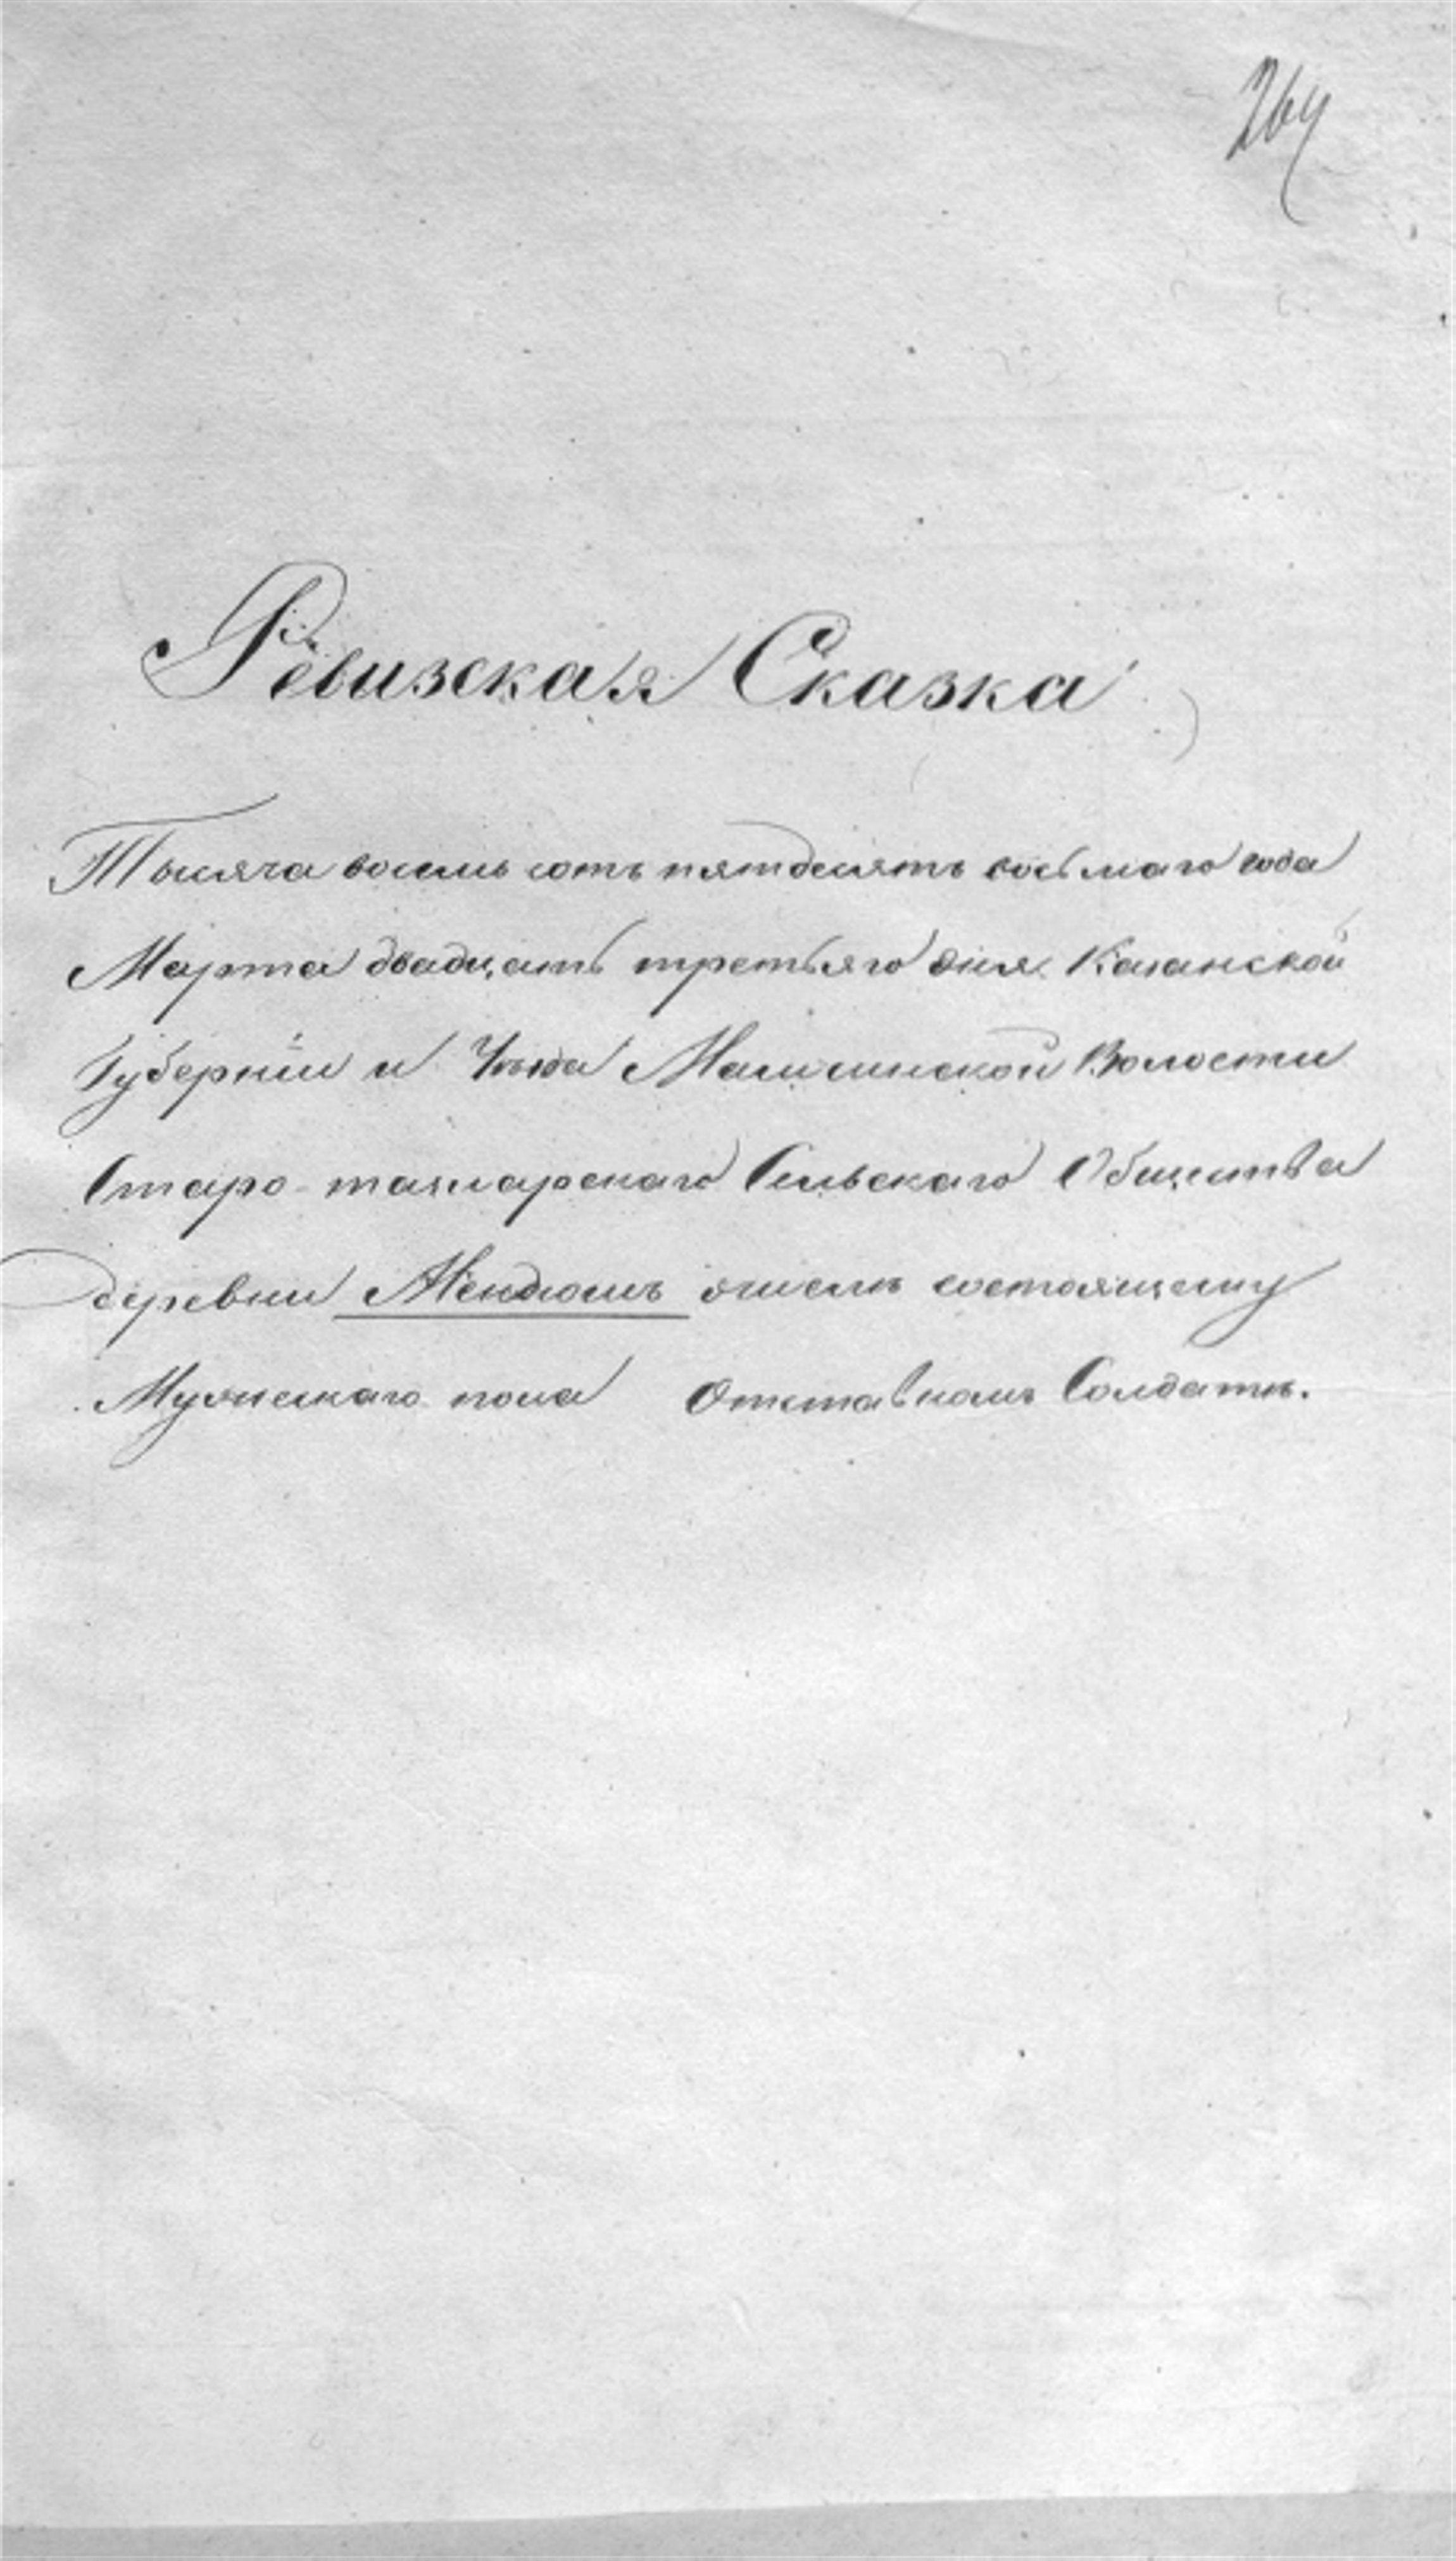 264
Ревизская Сказка
Тысяча восемь сотъ пятдесятъ восьмаго года
Марта двадцать третьяго дня Казанской
Губерніи и Уѣзда Мамсинской Волости
Старо-ташларскаго Сельскаго Общества
деревни Мендюшъ о состоящему
Мужескаго пола Отставномъ Солдатѣ.